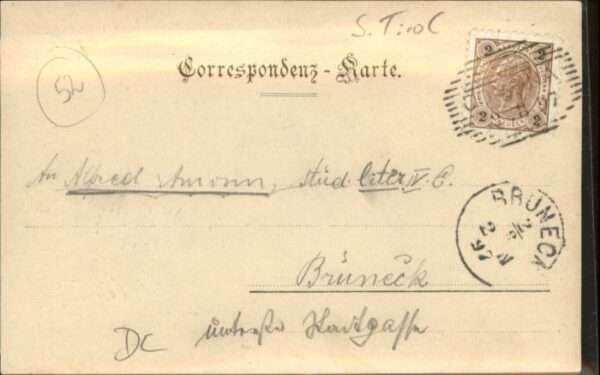 S. Tirol
52
Correspondenz-Karte.
2 2
2 2
An Alfred Amonn, stud. litter IV. C.
BRUNECK
2 97
Brüneck
DC unterste Stadtgasse